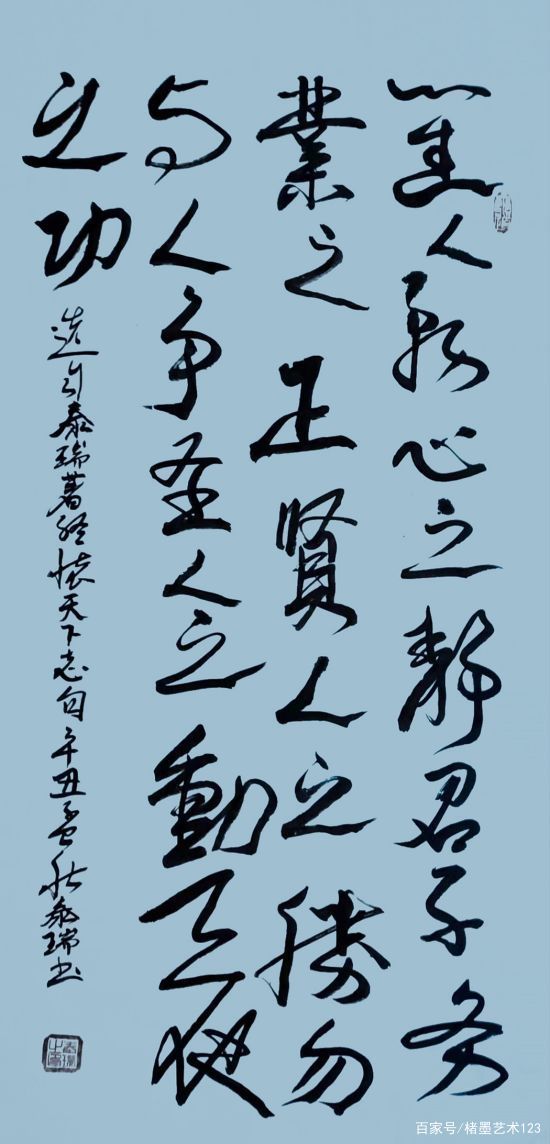 人心之静君子务
業之正賢人之勝勿
与人争圣人之動
之功
选泰瑞著怀天下志句辛丑孟秋泰瑞书
百家号/楮墨艺术123